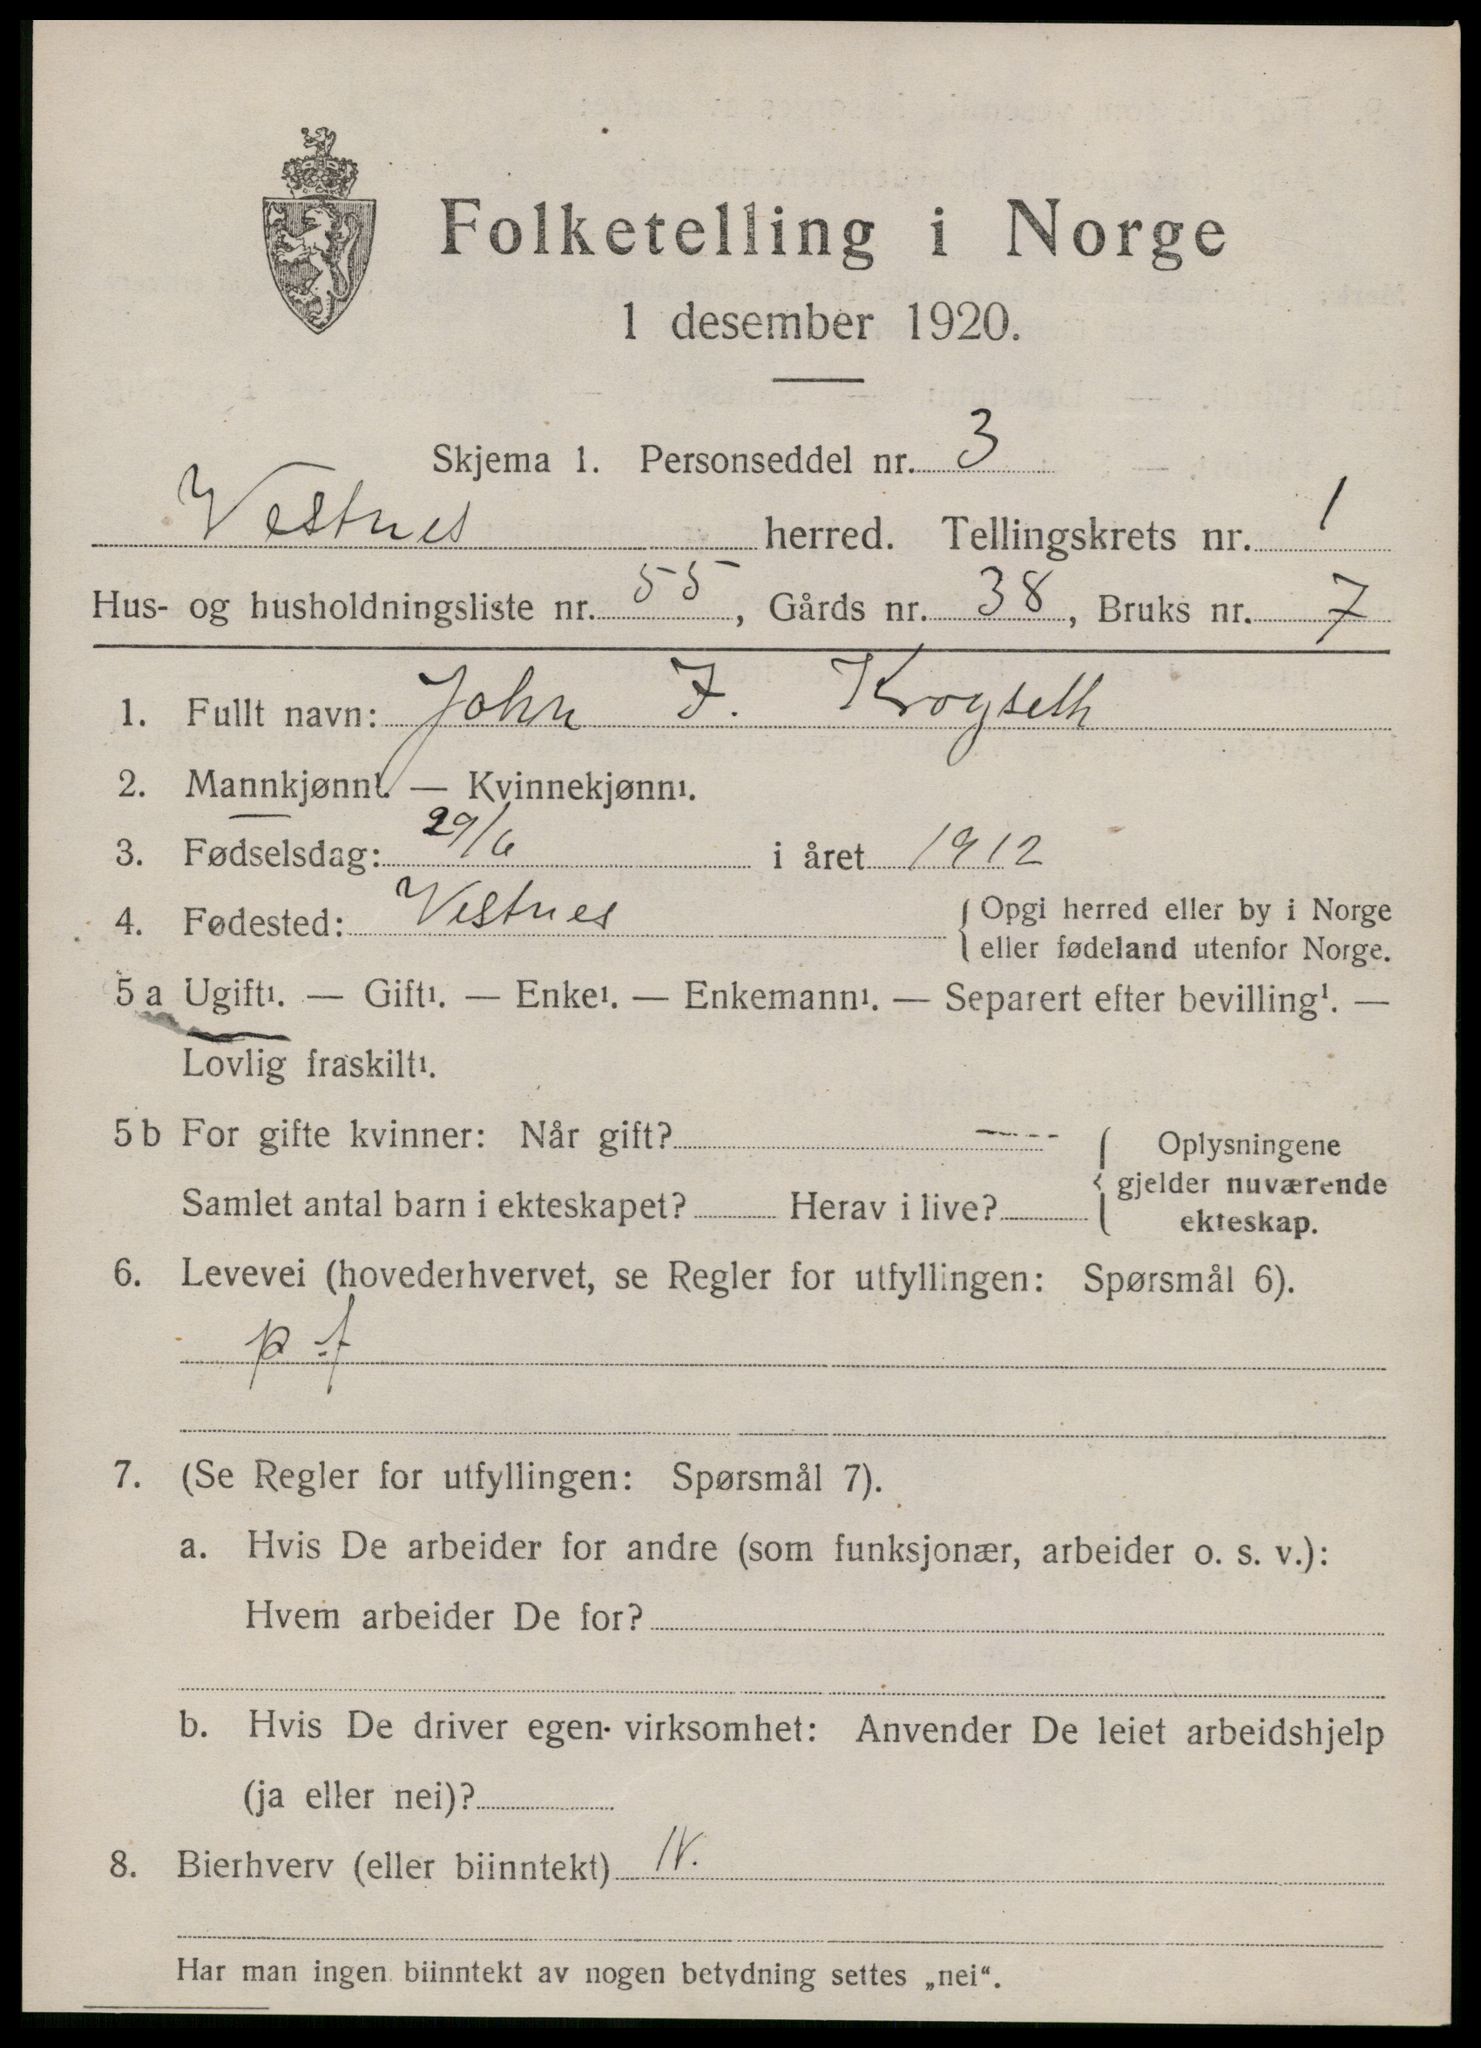 Folketelling i Norge
1 desember 1920.
Skjema 1. Personseddel nr. 3
Vestnes herred. Tellingskrets nr. 1
Hus- og husholdningsliste nr. 55, Gårds nr. 38, Bruks nr. 7
1. Fullt navn: John F. Krogseth
2. Mannkjønn¹. — Kvinnekjønn¹.
3. Fødselsdag: 29/6 i året 1912
4. Fødested: Vestnes { Opgi herred eller by i Norge
eller fødeland utenfor Norge.
5 a Ugift¹. — Gift¹. — Enke¹. — Enkemann¹. — Separert efter bevilling¹. —
Lovlig fraskilt¹.
5 b For gifte kvinner: Når gift? — { Oplysningene
gjelder nuværende
ekteskap.
Samlet antal barn i ekteskapet? Herav i live?
6. Levevei (hovederhvervet, se Regler for utfyllingen: Spørsmål 6).
p f
7. (Se Regler for utfyllingen: Spørsmål 7).
a. Hvis De arbeider for andre (som funksjonær, arbeider o. s. v.):
Hvem arbeider De for?
b. Hvis De driver egen virksomhet: Anvender De leiet arbeidshjelp
(ja eller nei)?
8. Bierhverv (eller biinntekt) N.
Har man ingen biinntekt av nogen betydning settes „nei“.